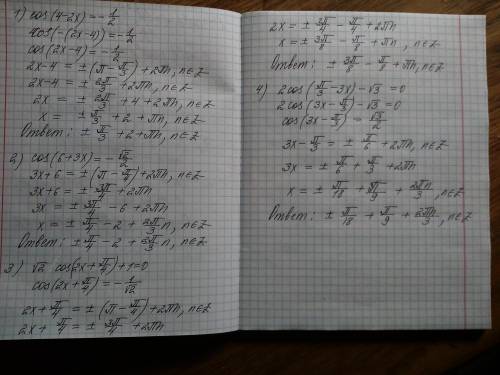 1) cos(4-2x) = -1/2
cos(-(2x-4)) = -1/2
cos(2x-4) = -1/2
2x-4 = ±(π-π/3)+2πn, n∈Z
2x-4 = ± 2π/3 +2πn, n∈Z
2x = ± 2π/3 +4+2πn, n∈Z
x = ± π/3 +2+πn, n∈Z
Ответ: ± π/3 +2+πn, n∈Z
2) cos(6+3x) = -√2/2
3x+6 = ±(π-π/4)+2πn, n∈Z
3x+6 = ± 3π/4 +2πn
3x = ± 3π/4 -6+2πn
x = ± π/4 -2 + 2π/3 n, n∈Z
Ответ: ± π/4 -2 + 2π/3 n, n∈Z
3) √2 cos(2x+π/4)+1=0
cos(2x+π/4) = -1/√2
2x+π/4 = ±(π-π/4)+2πn, n∈Z
2x+ π/4 = ± 3π/4 +2πn
2x = ± 3π/4 - π/4 +2πn
x = ± 3π/8 - π/8 +πn, n∈Z
Ответ: ± 3π/8 - π/8 +πn, n∈Z
4) 2cos(π/3-3x)-√3=0
2cos(3x-π/3)-√3=0
cos(3x-π/3) = √3/2
3x-π/3 = ± π/6 +2πn, n∈Z
3x = ± π/6 + π/3 +2πn
x = ± π/18 + π/9 + 2πn/3, n∈Z
Ответ: ± π/18 + π/9 + 2πn/3, n∈Z